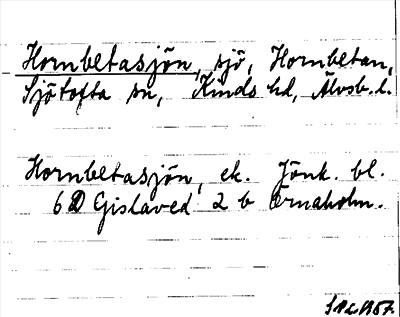 Hornbetasjön, sjö, Hornbetan,
Sjötofta sn, Kinds hd, Älvsb. l.
Hornbetasjön, ek. Jönk. bl.
6 D Gislaved 2 b Örnaholm.